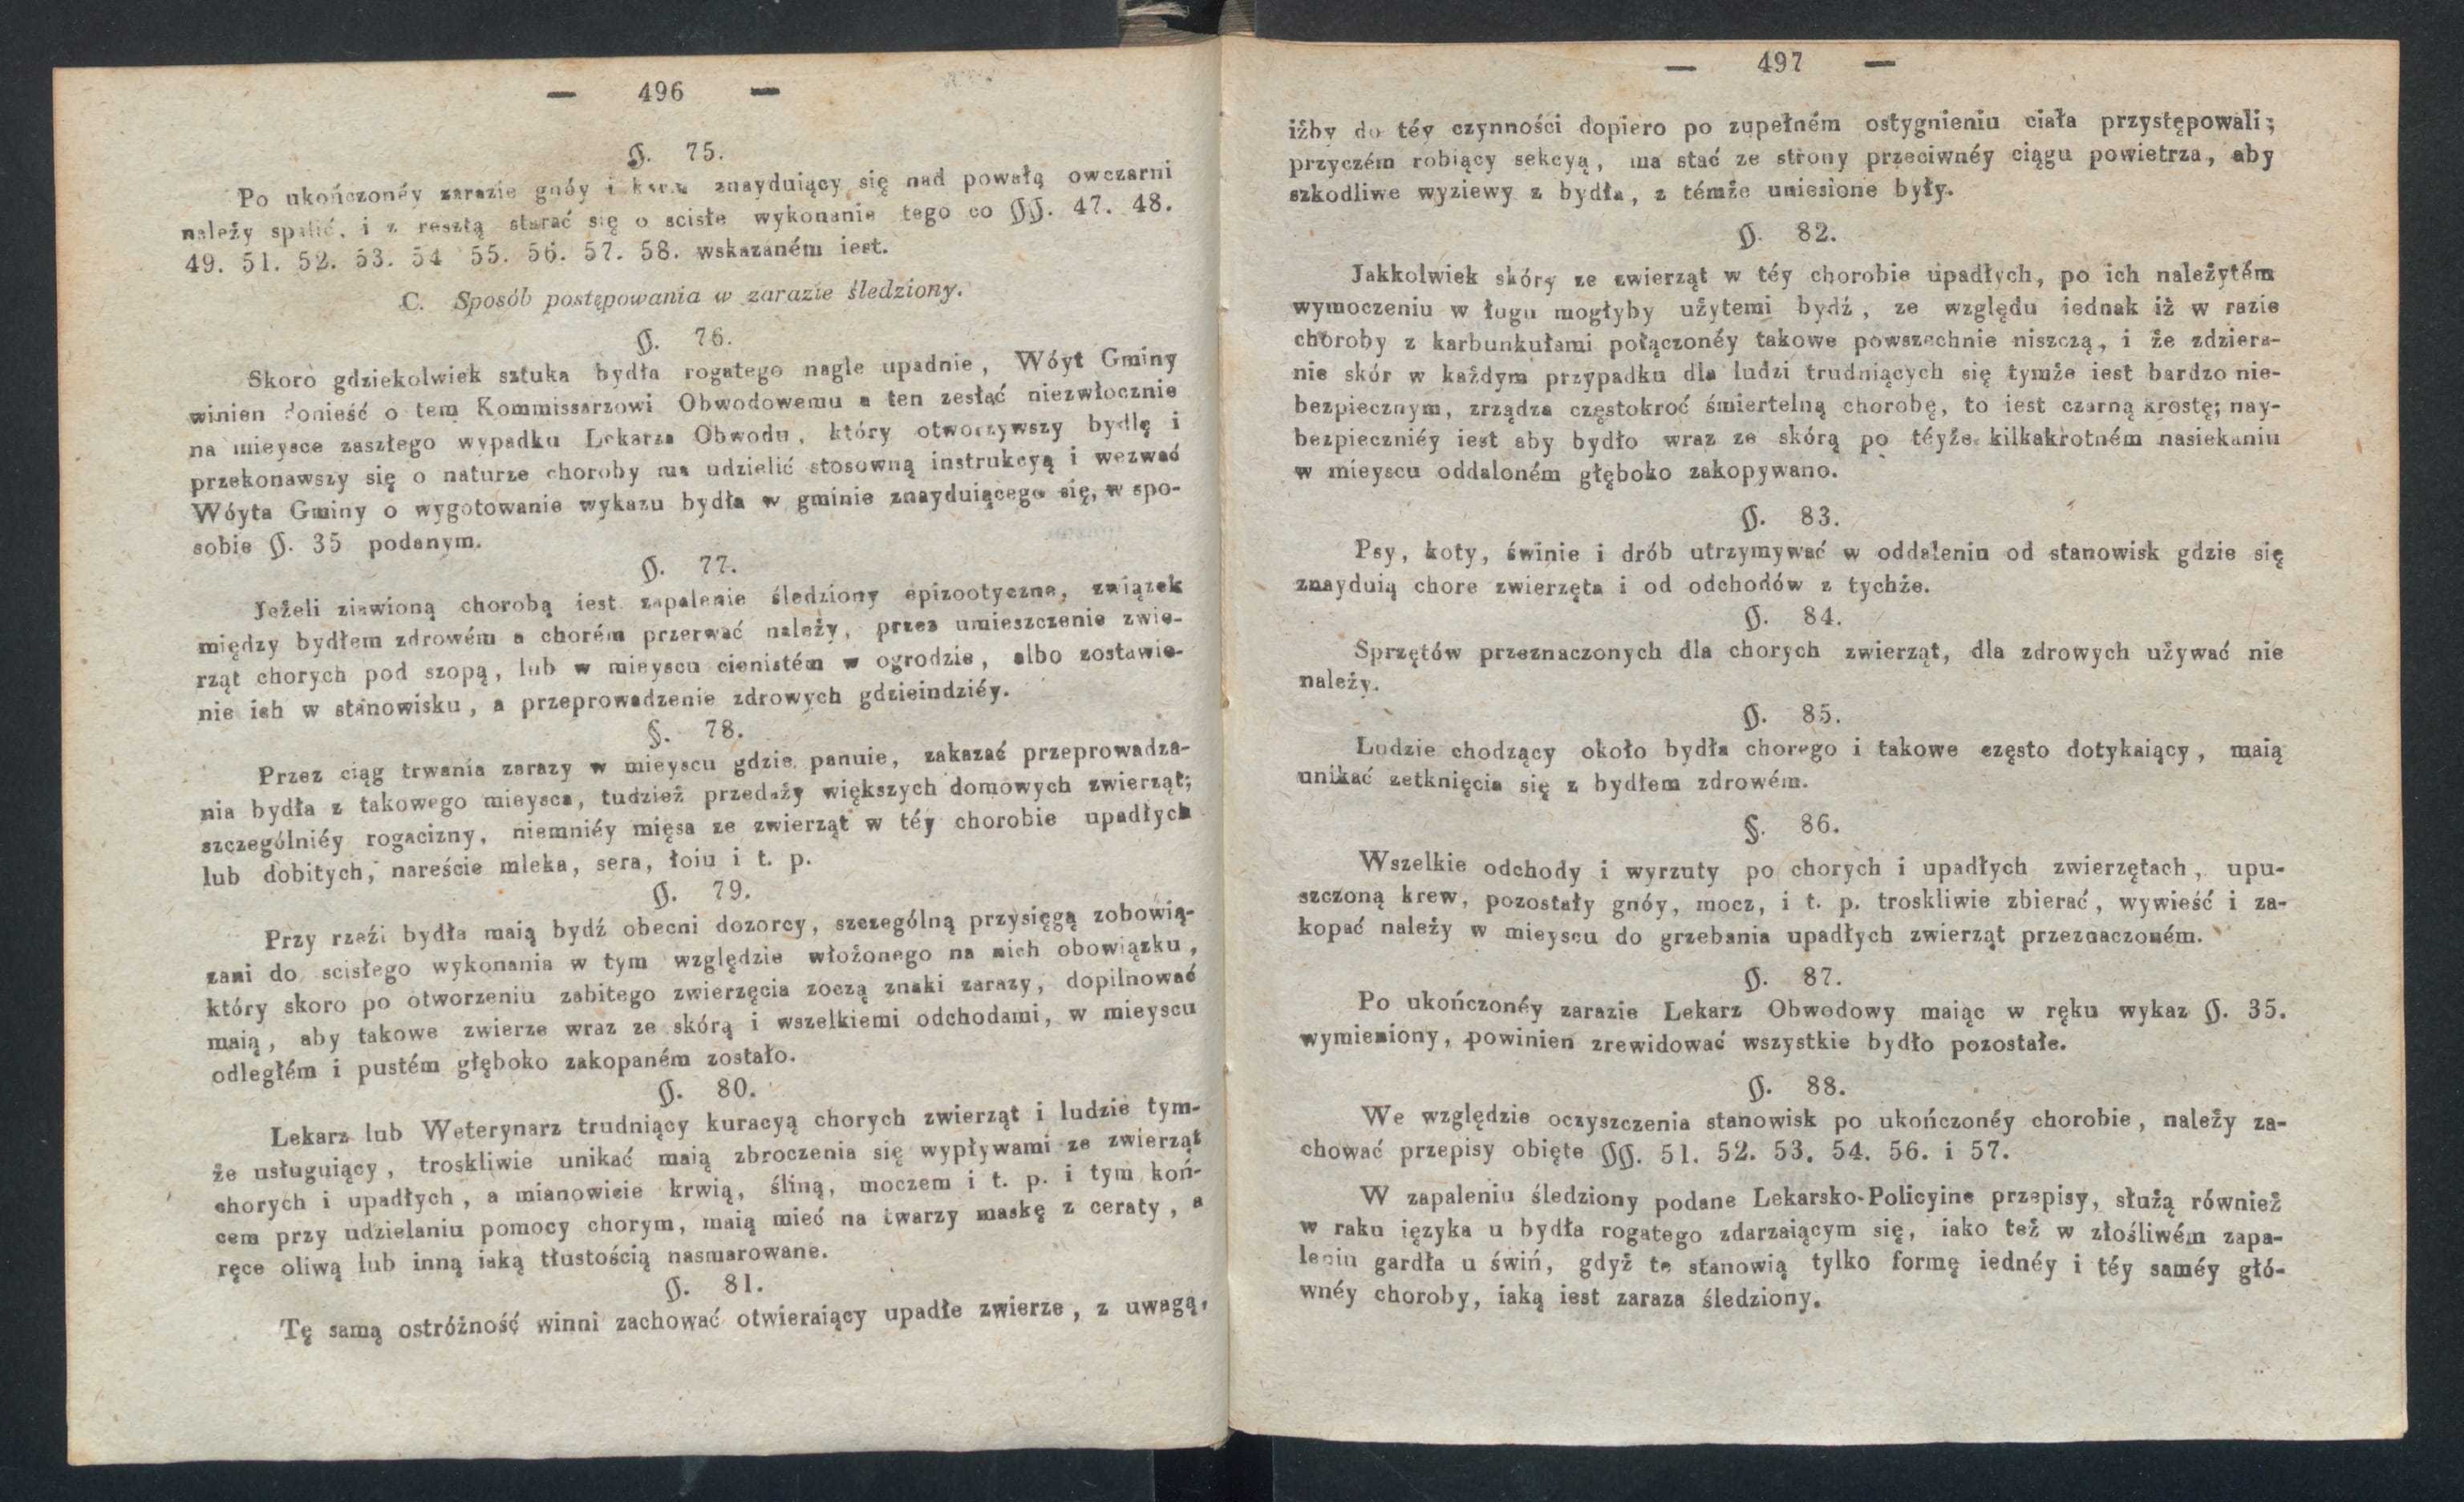 — 496 —
§. 75.
Po ukończonéy zarazie gnóy i znayduiący się nad powałą owczarni
należy spalić, i z resztą starać się o scisłe wykonanie tego co §§. 47. 48.
49. 51. 52. 53. 54 55. 56. 57. 58. wskazáném iest.
C. Sposób postępowania w zarazie śledziony.
§. 76.
Skoro gdziekolwiek sztuka bydła rogatego nagle upadnie, Wóyt Gminy
winien donieść o tem Kommissarzowi Obwodowemu a ten zesłąć niezwłocznie
na mieysce zaszłego wypadku Lekarza Obwodu, który otworzywszy bydlę i
przekonawszy się o naturze choroby ma udzielić stosowną instrukcyą i wezwać
Wóyta Gminy o wygotowanie wykazu bydła w gminie znayduiącego się, w spo-
sobie §. 35 podanym.
§. 77.
Jeżeli ziawioną chorobą iest zapalenie śledziony epizootyczne, związek
między bydłem zdrowém a chorém przerwać należy, przez umieszczenie zwie-
rząt chorych pod szopą, lub w mieyscu cienistém w ogrodzie, albo zostawie-
nie ich w stanowisku, a przeprowadzenie zdrowych gdzieindziéy.
§. 78.
Przez ciąg trwania zarazy w mieyscu gdzie panuie, zakazać przeprowadza-
nia bydła z takowego mieysca, tudzież przedaży większych domowych zwierząt;
szczególniéy rogacizny, niemniéy mięsa ze zwierząt w téy chorobie upadłych
lub dobitych, nareście mleka, sera, łoiu i t. p.
§. 79.
Przy rzeźi bydła maią bydź obecni dozorcy, szczególną przysięgą zobowią-
zani do scisłego wykonania w tym względzie włożonego na nich obowiązku,
który skoro po otworzeniu zabitego zwierzęcia zoczą znaki zarazy, dopilnować
maią, aby takowe zwierze wraz ze skórą i wszelkiemi odchodami, w mieyscu
odległém i pustém głęboko zakopaném zostało.
§. 80.
Lekarz lub Weterynarz trudniący kuracyą chorych zwierząt i ludzie tym-
że usługuiący, troskliwie unikać maią zbroczenia się wypływami ze zwierząt
chorych i upadłych, a mianowicie krwią, śliną, moczem i t. p. i tym koń-
cem przy udzielaniu pomocy chorym, maią mieć na twarzy maskę z ceraty, a
ręce oliwą lub inną iaką tłustością nasmarowane.
§. 81.
Tę samą ostróżność winni zachować otwieraiący upadłe zwierze, z uwagą,
— 497 —
iżby do téy czynności dopiero po zupełném ostygnieniu ciała przystępowali;
przyczém robiący sekcyą, ma stać ze strony przeciwnéy ciągu powietrza, aby
szkodliwe wyziewy z bydła, z témże uniesione były.
§. 82.
Jakkolwiek skóry ze zwierząt w téy chorobie upadłych, po ich należytém
wymoczeniu w ługu mogłyby użytemi bydź, ze względu iednak iż w razie
choroby z karbunkułami połączonéy takowe powszechnie niszczą, i że zdziera-
nie skór w każdym przypadku dla ludzi trudniących się tymże iest bardzo nie-
bezpiecznym, zrządza częstokroć śmiertelną chorobę, to iest czarną krostę; nay-
bezpieczniéy iest aby bydło wraz ze skórą po téyże kilkakrotném nasiekaniu
w mieyscu oddaloném głęboko zakopywano.
§. 83.
Psy, koty, świnie i drób utrzymywać w oddaleniu od stanowisk gdzie się
znayduią chore zwierzęta i od odchodów z tychże.
§. 84.
Sprzętów przeznaczonych dla chorych zwierząt, dla zdrowych używać nie
należy.
§. 85.
Ludzie chodzący około bydła chorego i takowe często dotykaiący, maią
unikać zetknięcia się z bydłem zdrowém.
§. 86.
Wszelkie odchody i wyrzuty po chorych i upadłych zwierzętach, upu-
szczoną krew, pozostały gnóy, mocz, i t. p. troskliwie zbierać, wywieść i za-
kopać należy w mieyscu do grzebania upadłych zwierząt przeznaczoném.
§. 87.
Po ukończonéy zarazie Lekarz Obwodowy maiąc w ręku wykaz §. 35.
wymieniony, powinien zrewidować wszystkie bydło pozostałe.
§. 88.
We względzie oczyszczenia stanowisk po ukończonéy chorobie, należy za-
chować przepisy obięte §§. 51. 52. 53. 54. 56. i 57.
W zapaleniu śledziony podane Lekarsko-Policyine przepisy, służą również
w raku ięzyka u bydła rogatego zdarzaiącym się, iako też w złośliwém zapa-
leniu gardła u świń, gdyż te stanowią tylko formę iednéy i téy saméy głó-
wnéy choroby, iaką iest zaraza śledziony.